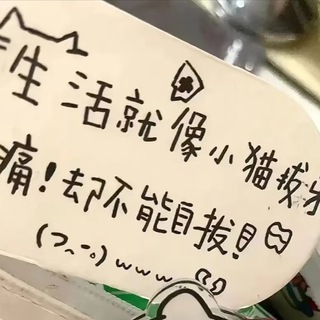 生活就像小猫拔牙
痛!却不能自拔!
(つ、ー。) www